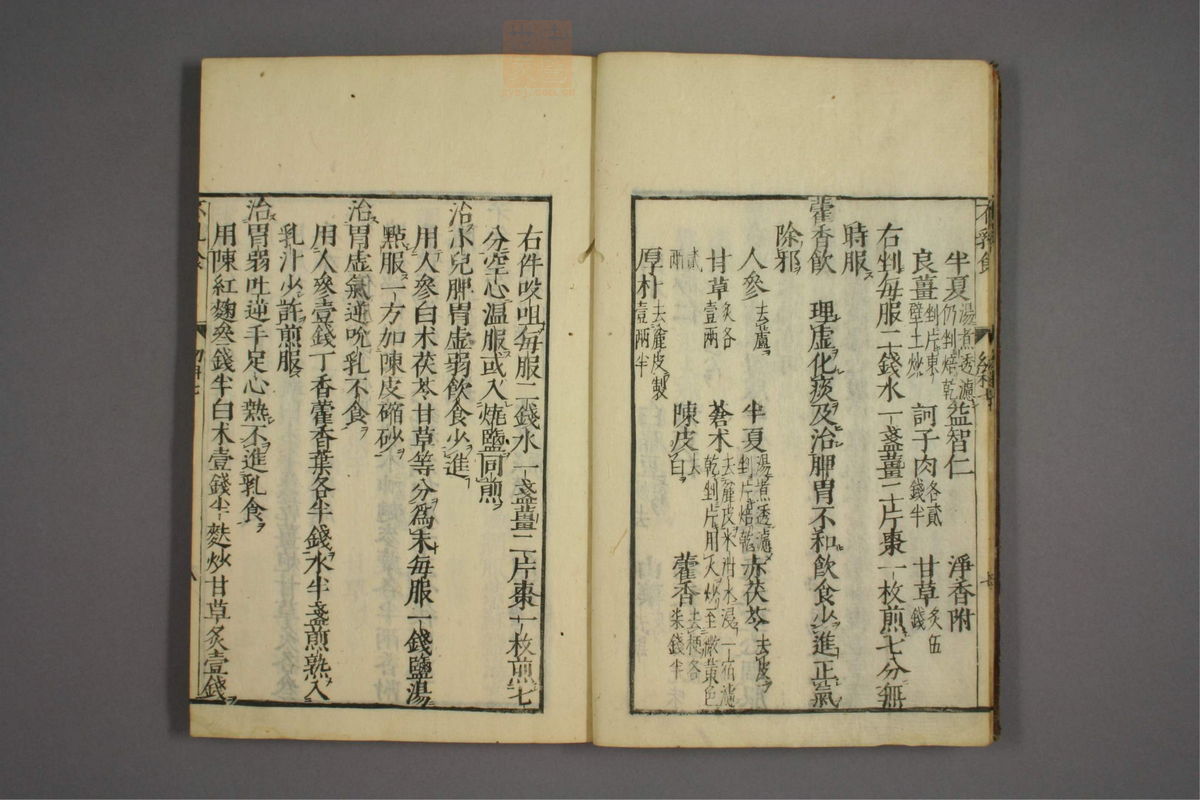 半夏湯煮透濾仍剉焙乾 益智仁 淨香附
良薑剉片東壁土炒 訶子肉各貳錢半 甘草炙伍錢
右剉每服二錢水一盞薑二片棗一枚煎七分無
時服
藿香飲 理虛化痰及治脾胃不和飲食少進正氣
除邪
人參去蘆 半夏湯煮透濾剉片焙乾 赤茯苓去皮
甘草炙各壹兩 蒼朮去麄皮米泔水浸一宿濾乾剉片用火炒至微黃色
貳兩 陳皮去白 藿香去梗各柒錢半
厚朴去麄皮製壹兩半
右件㕮咀每服二錢水一盞薑二片棗一枚煎七
分空心温服或入燒鹽同煎
治小兒脾胃虛弱飲食少進
用人參白朮茯苓甘草等分爲末每服一錢鹽湯
點服一方加陳皮縮砂
治胃虛氣逆吮乳不食
用人參壹錢丁香藿香葉各半錢水半盞煎熟入
乳汁少許煎服
治胃弱吐逆手足心熱不進乳食
用陳紅麴叁錢半白朮壹錢半麩炒甘草炙壹錢